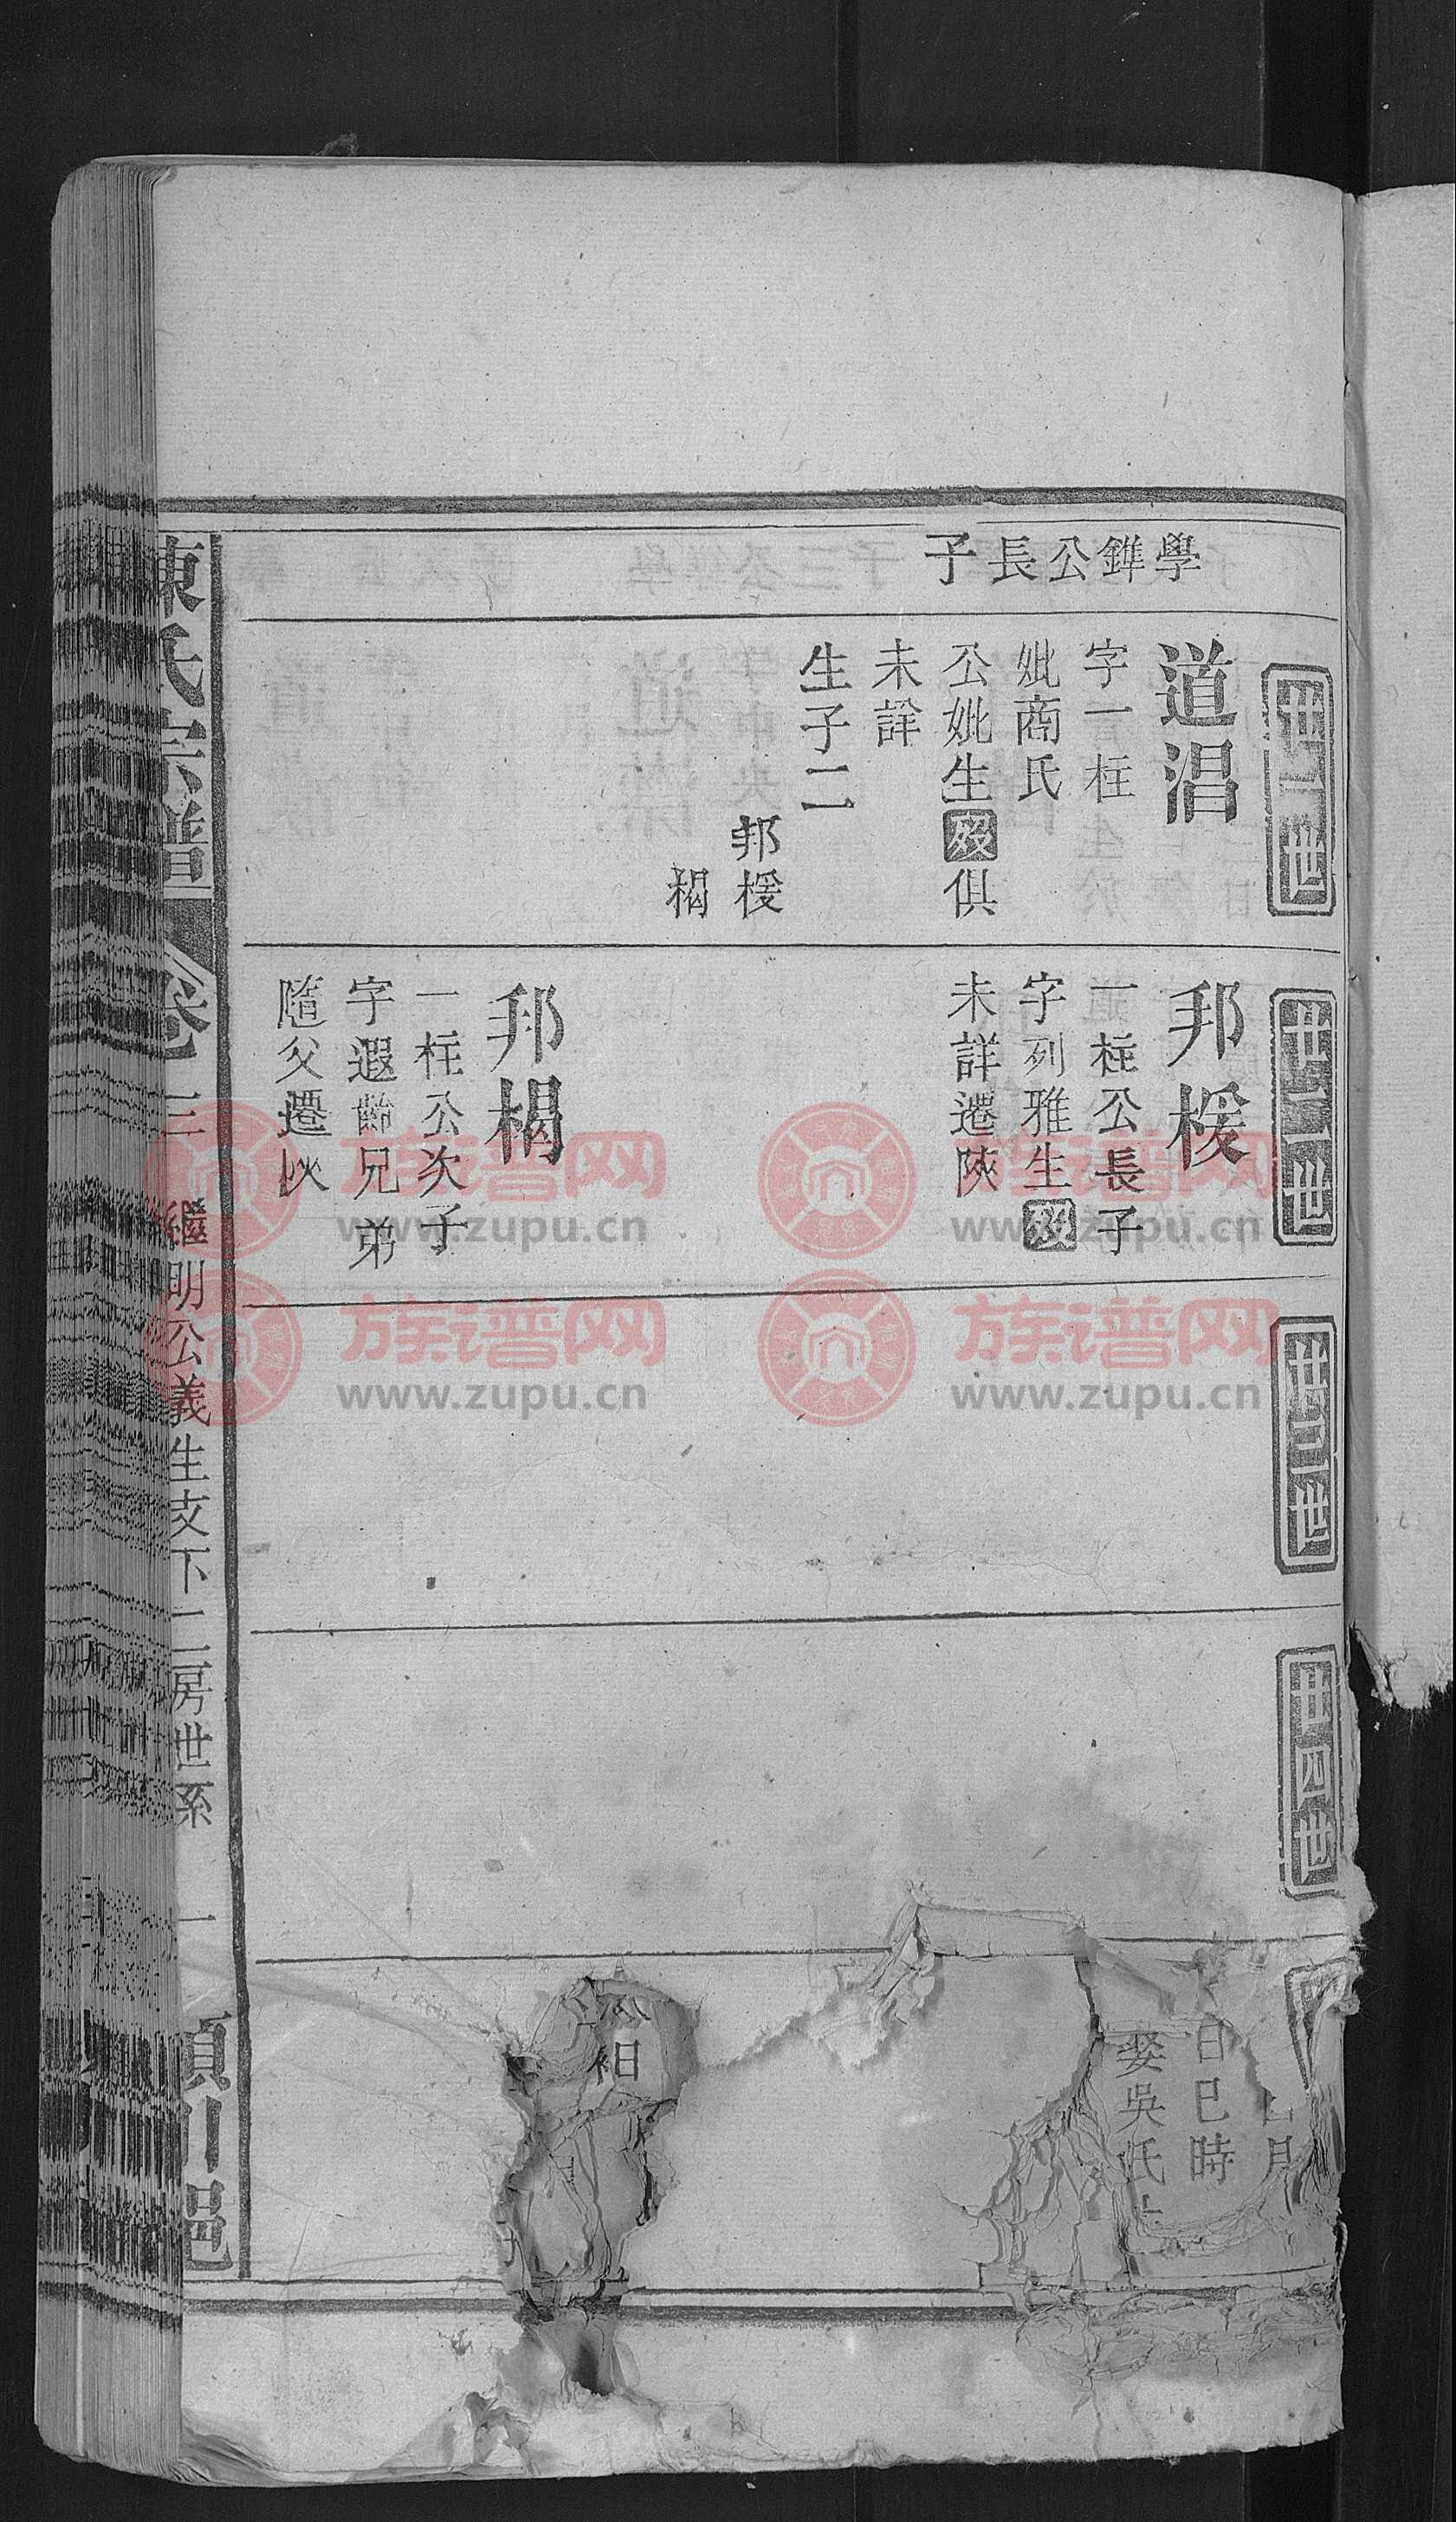 學鏵公長子
廿一世
道淐
字一柱
妣商氏
公妣生歿俱
未詳
生子二
邦楥
楬
廿二世
邦楥
一柱公長子
字列雅生歿
未詳遷陝
邦楬
一柱公次子
字遐齡兄弟
隨父遷陝
廿三世
廿四世
月
日巳時
娶吳氏
陳氏宗譜
卷三
繼明公義生支下二房世系
一
潁川邑
族谱网
www.zupu.cn
族谱网
www.zupu.cn
族谱网
www.zupu.cn
族谱网
www.zupu.cn